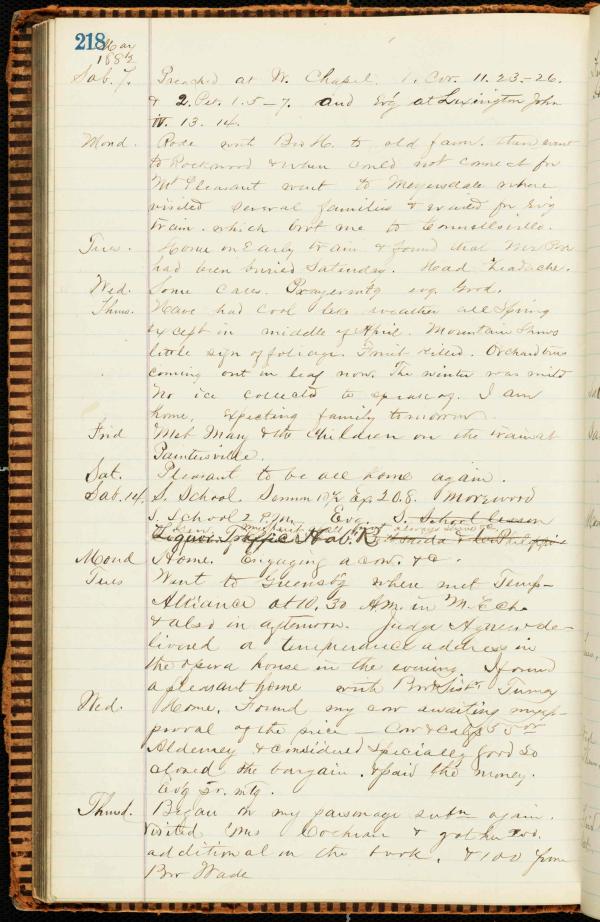 218 May
1882
Sab. 7. Preached at W. Chapel. 1. Cor. 11. 23-26.
& 2. Pet. 1. 5-7. and Ev'g at Livington John
13. 14.
Mond. Rode with Bro H. to old farm. then went
to Rockwood & when could not connect for
Mt Pleasant went to Meyersdale where
visited several families & waited for Ev'g
train. which brot me to Connellsville.
Tues. Home on Early train & found that Mrs
had been buried Saturday. Head headache.
Wed. Some calls. Prayermtg evg. Good.
Thurs. Have had cool like weather all Spring
except in middle of April. Mountain shows
little sign of foliage. Fruit killed. Orchard trees
coming out in leaf now. The winter was mild
No ice collected to speak of. I am
home, expecting family tomorrow.
Frid Met Mary & the children on the train at
Paintersville.
Sat. Pleasant to be all home again.
Sab. 14. S. School. Sermon 10½ Ex 20.8. Morewood
S. School 2 P.M. Evg. S. School lesson
Liquor Traffic Hab.
Mond Home. Engaging a cow. &c.
Tues Went to Greensb'g where met Temp-
Alliance at 10.30 A.M. in M. E Ch.
& also in afternoon. Judge Agnew de-
livered a temperance address in
the opera house in the evening. I found
a pleasant home with Bro & Sister Turney
Wed. Home. Found my cow awaiting my ap-
proval of the price — Cow & calf 55 00
Alderney & considered specially good So
closed the bargain. & paid the money.
Evg Pr. mtg.
Thursd. Began on my parsonage subn again.
Visited Mrs Cochran & got her 200.
additional on the book. & 100 from
Bro Wade